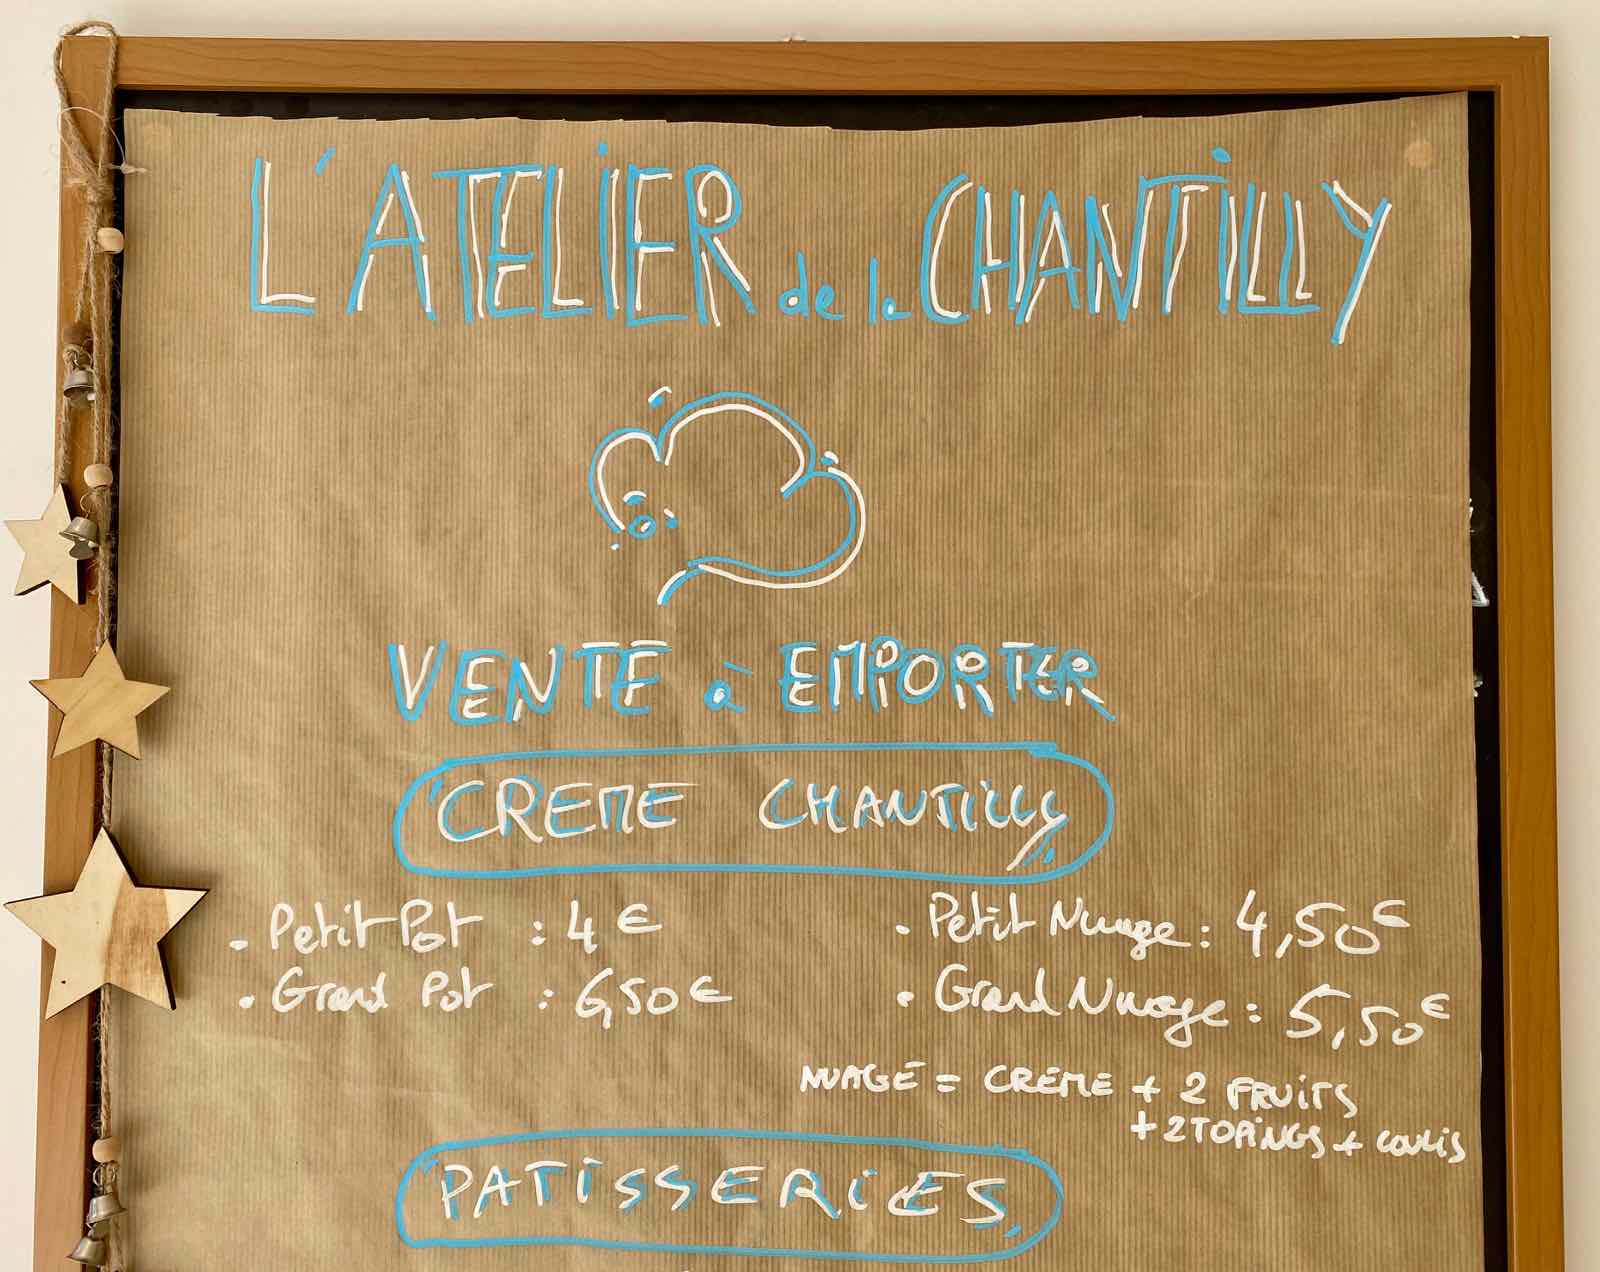 L'ATELIER de la CHANTILLY
VENTE à EMPORTER
CREME CHANTILLY
• Petit Pot : 4 €
• Grand Pot : 6,50 €
• Petit Nuage : 4,50 €
• Grand Nuage : 5,50 €
NUAGE = CREME + 2 FRUITS
+ 2 TOPINGS + Coulis
PATISSERIES